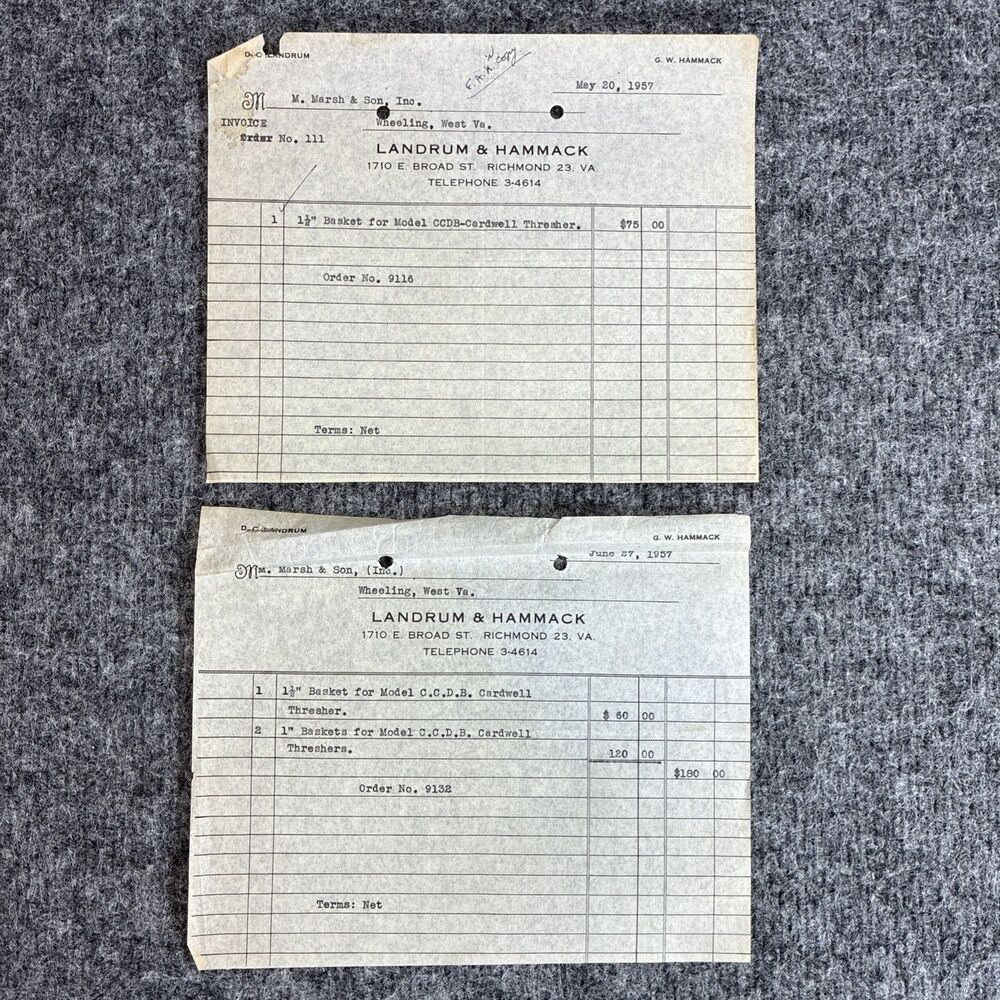 D. C. LANDRUM
G. W. HAMMACK
May 20, 1957
M M. Marsh & Son, Inc.
INVOICE
Wheeling, West Va.
Order No. 111
LANDRUM & HAMMACK
1710 E. BROAD ST. RICHMOND 23, VA.
TELEPHONE 3-4614
1 1½" Basket for Model CCDB-Cardwell Thresher. $75 00
Order No. 9116
Terms: Net
D. C. LANDRUM
G. W. HAMMACK
June 27, 1957
M M. Marsh & Son, (Inc.)
Wheeling, West Va.
LANDRUM & HAMMACK
1710 E. BROAD ST. RICHMOND 23, VA.
TELEPHONE 3-4614
1 1½" Basket for Model C.C.D.B. Cardwell
Thresher. $ 60 00
2 1" Baskets for Model C.C.D.B. Cardwell
Threshers. 120 00
$180 00
Order No. 9132
Terms: Net